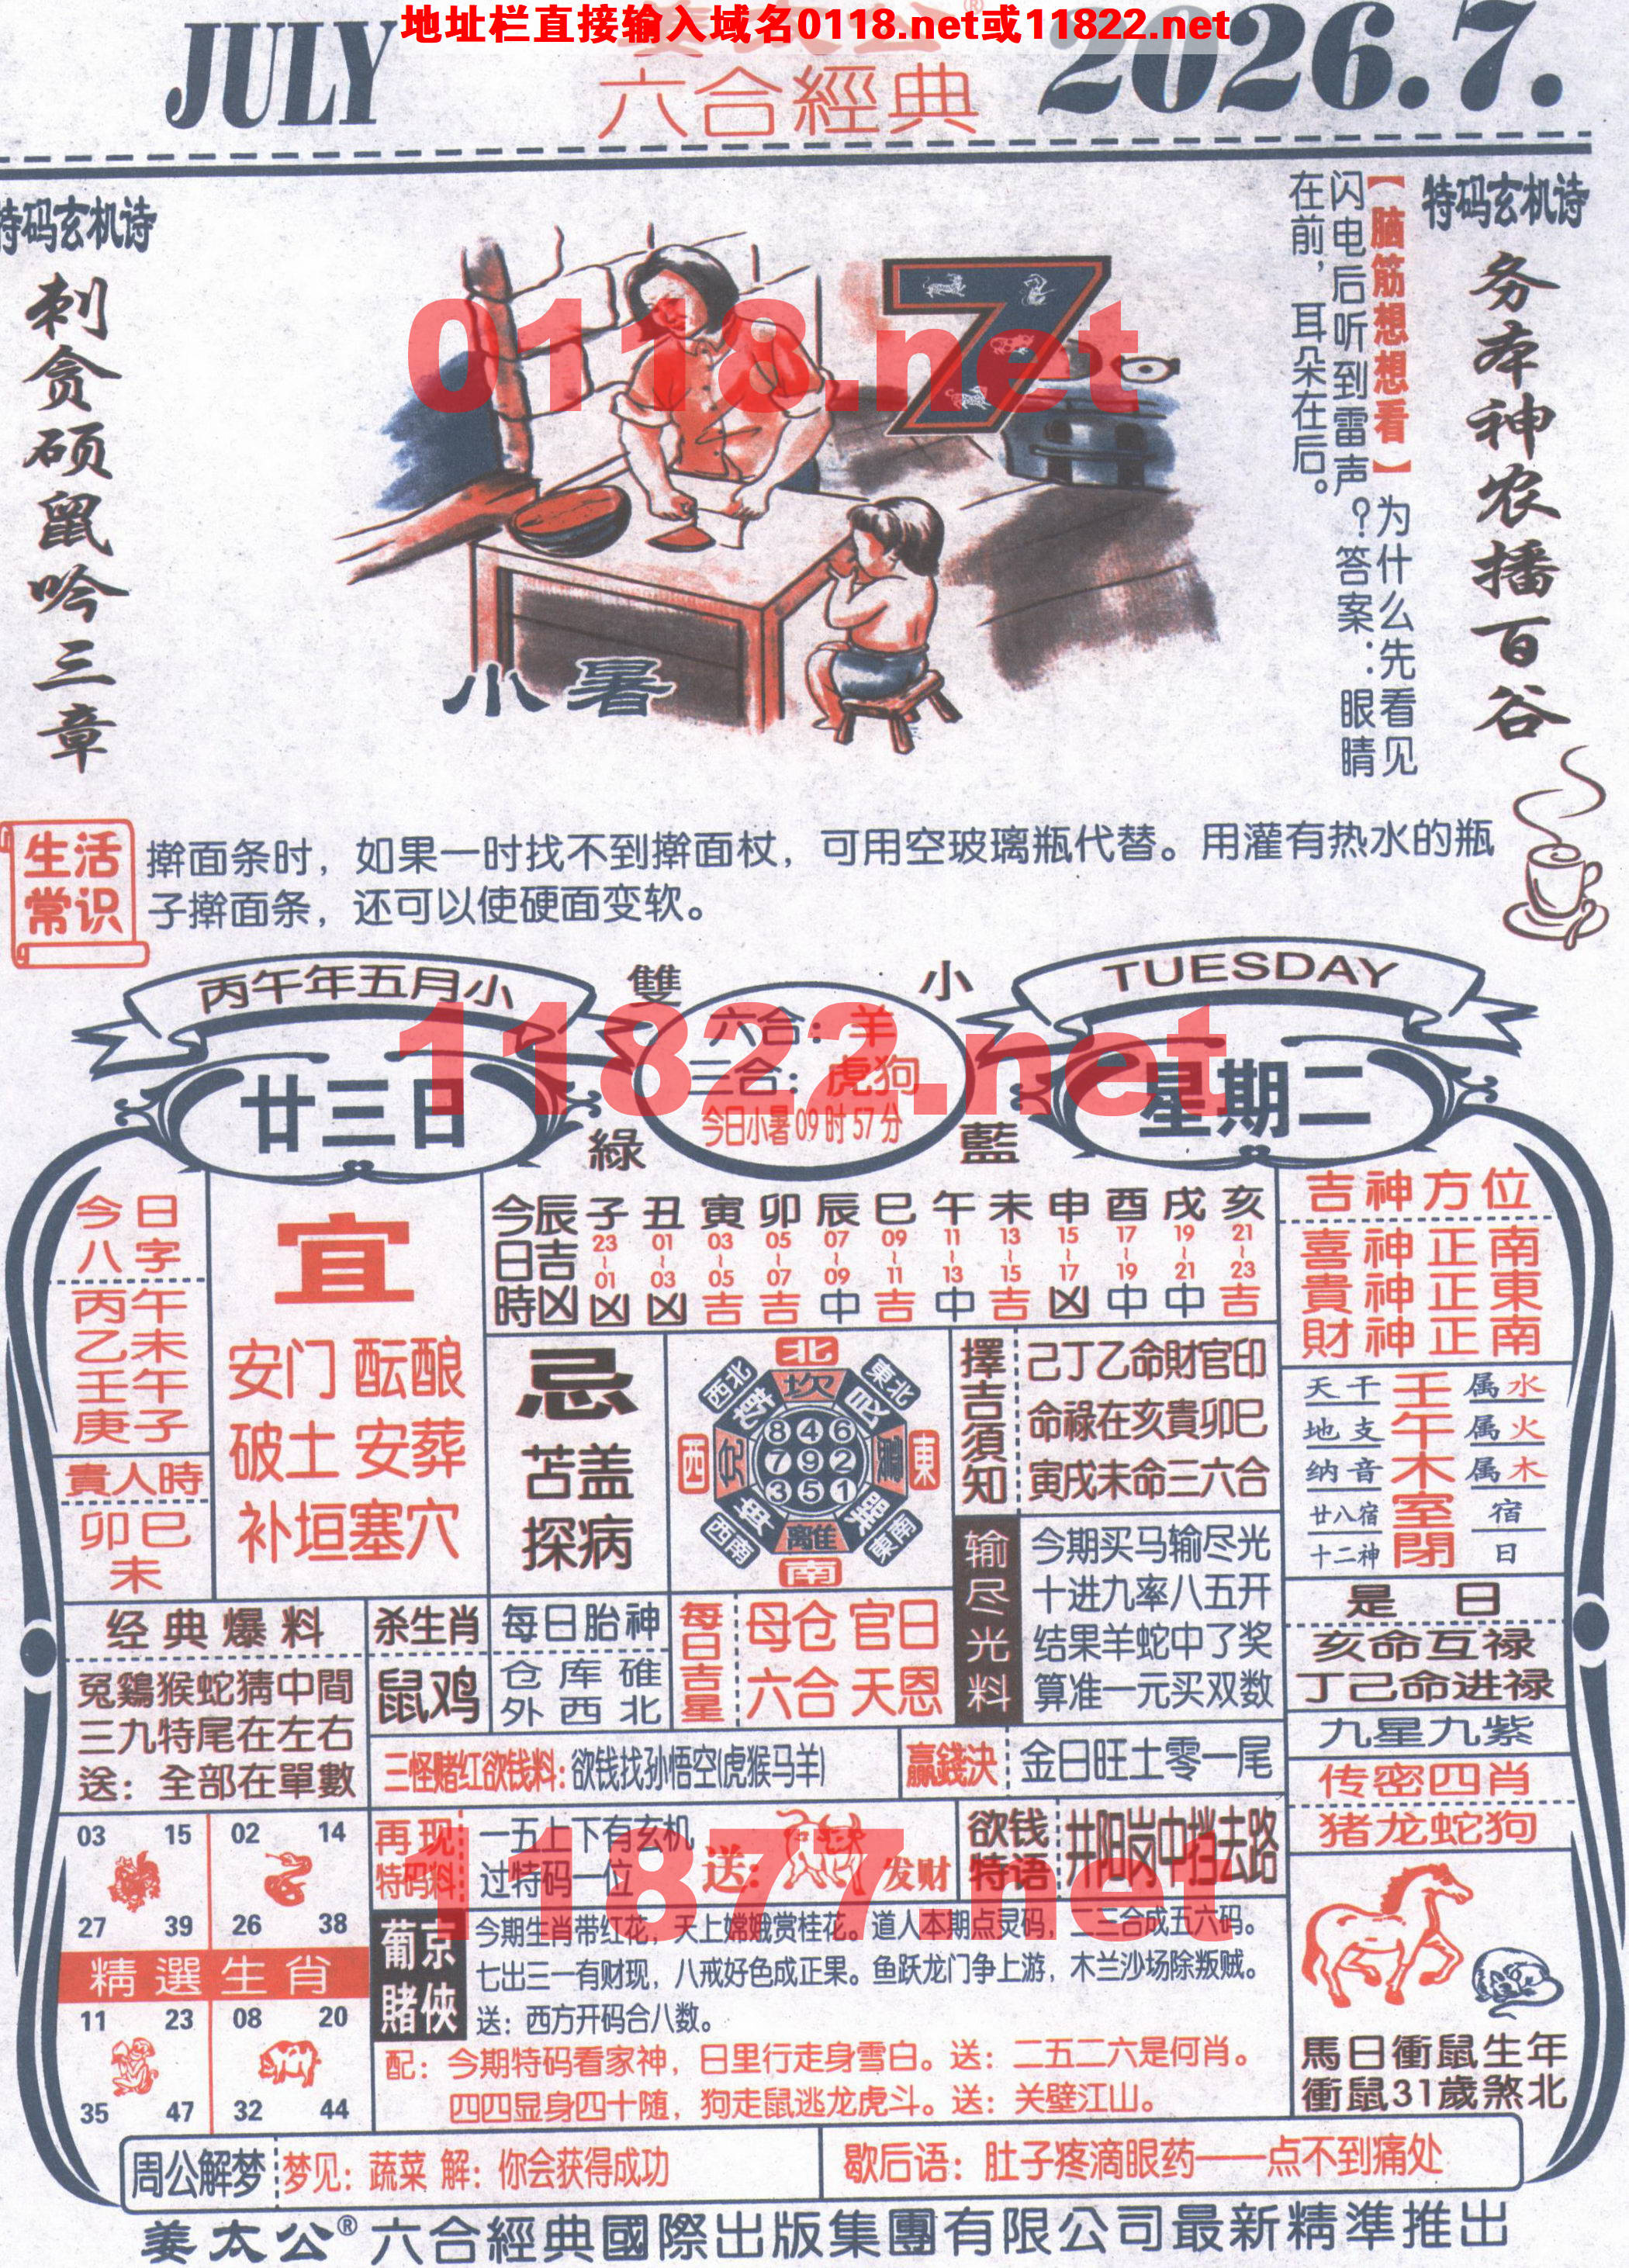 地址栏直接输入域名0118.net或11822.net
JULY
六合經典
2026.7.
特码玄机诗
刺贪硕鼠吟三章
特码玄机诗
务本神农播百谷
【脑筋想想看】为什么先看见
闪电后听到雷声?答案:眼睛
在前,耳朵在后。
7
0118.net
小暑
生活
常识
擀面条时,如果一时找不到擀面杖,可用空玻璃瓶代替。用灌有热水的瓶
子擀面条,还可以使硬面变软。
丙午年五月小
廿三日
雙
小
六合:羊
三合:虎狗
今日小暑09时57分
綠
藍
TUESDAY
星期二
11822.net
今日
八字
丙午
乙未
壬午
庚子
貴人時
卯巳
未
宜
安门 酝酿
破土 安葬
补垣塞穴
今辰 子 丑 寅 卯 辰 巳 午 未 申 酉 戌 亥
日吉 23~01 01~03 03~05 05~07 07~09 09~11 11~13 13~15 15~17 17~19 19~21 21~23
時凶 凶 凶 吉 吉 中 吉 中 吉 凶 中 中 吉
忌
苫盖
探病
北
西北 東北
坎
846
西 兑 792 東
351
離
西南 東南
南
擇吉須知
己丁乙命財官印
命祿在亥貴卯巳
寅戌未命三六合
吉神方位
喜神正南
貴神正東
財神正南
天干 壬 属水
地支 午 属火
纳音 木 属木
廿八宿 室 宿
十二神 閉 日
输尽光料
今期买马输尽光
十进九率八五开
结果羊蛇中了奖
算准一元买双数
是日
亥命互禄
丁己命进禄
九星九紫
传密四肖
猪龙蛇狗
经典爆料
兔鷄猴蛇猜中間
三九特尾在左右
送:全部在單數
杀生肖
鼠鸡
每日胎神
仓库碓
外西北
每日吉星
母仓 官日
六合 天恩
三怪赌红欲钱料:欲钱找孙悟空(虎猴马羊)
赢錢決
金日旺土零一尾
03 15 02 14
27 39 26 38
精選生肖
11 23 08 20
35 47 32 44
再现
特码料
一五上下有玄机
过特码一位
送: 发财
欲钱
特语
井阳岗中挡去路
11877.net
葡京
賭俠
今期生肖带红花,天上嫦娥赏桂花。道人本期点灵码,二三合成五六码。
七出三一有财现,八戒好色成正果。鱼跃龙门争上游,木兰沙场除叛贼。
送:西方开码合八数。
配:今期特码看家神,日里行走身雪白。送:二五二六是何肖。
四四显身四十随,狗走鼠逃龙虎斗。送:关壁江山。
馬日衝鼠生年
衝鼠31歲煞北
周公解梦
梦见:蔬菜 解:你会获得成功
歇后语:肚子疼滴眼药——点不到痛处
姜太公®六合經典國際出版集團有限公司最新精準推出